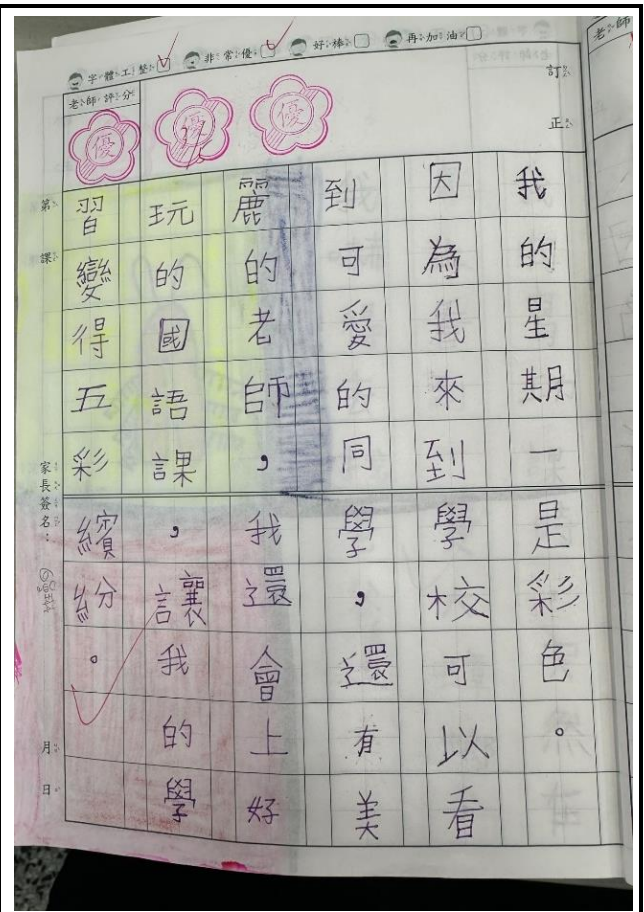 字體工整 非常優 好棒 再加油
老師評分
優 優 優
訂正
老師
我的星期一是彩色。
因為我來到學校可以看
到可愛的同學,還有美
麗的老師,我還會上好
玩的國語課,讓我的學
習變得五彩繽紛。
第 課
家長簽名:
月 日